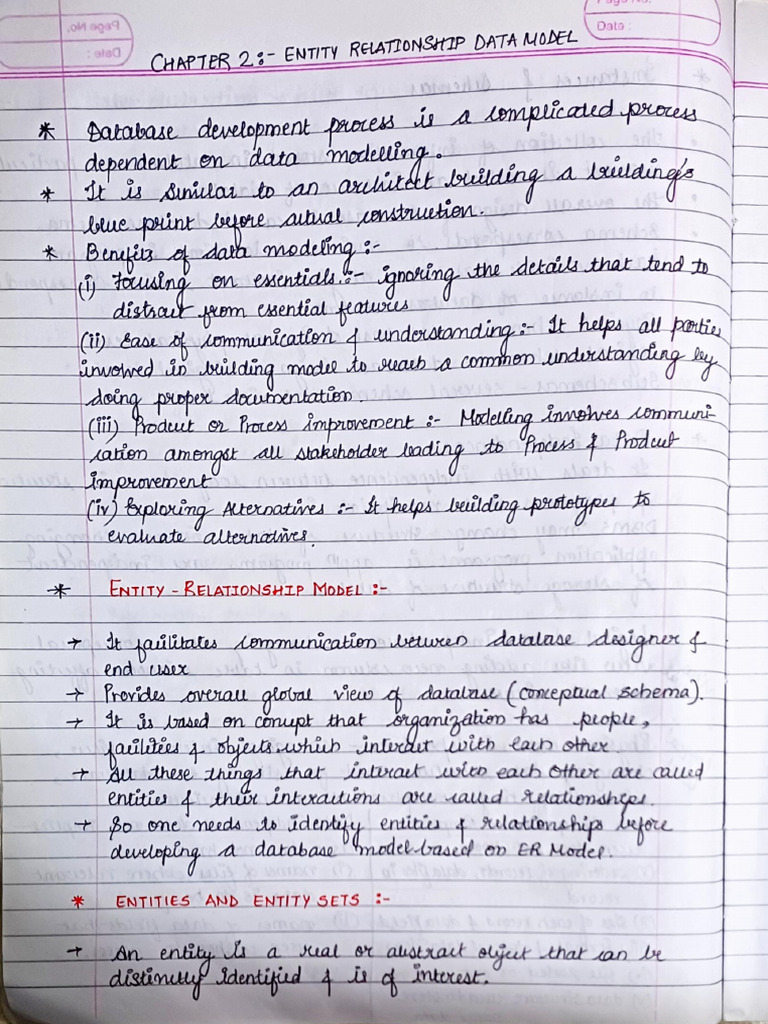 Page No.
Date :
CHAPTER 2:- ENTITY RELATIONSHIP DATA MODEL
* Database development process is a complicated process
dependent on data modelling.
* It is similar to an architect building a building's
blue print before actual construction.
* Benefits of data modeling :-
(i) Focusing on essentials :- ignoring the details that tend to
distract from essential features
(ii) Ease of communication & understanding :- It helps all parties
involved in building model to reach a common understanding by
doing proper documentation.
(iii) Product or Process improvement :- Modelling involves communi-
cation amongst all stakeholder leading to Process & Product
improvement
(iv) Exploring Alternatives :- It helps building prototypes to
evaluate alternatives.
* ENTITY - RELATIONSHIP MODEL :-
→ It facilitates communication between database designer &
end user
→ Provides overall global view of database (conceptual schema).
→ It is based on concept that organization has people,
facilities & objects which interact with each other
→ All these things that interact with each other are called
entities & their interactions are called relationships.
→ So one needs to identify entities & relationships before
developing a database model based on ER Model.
* ENTITIES AND ENTITY SETS :-
→ An entity is a real or abstract object that can be
distinctly identified & is of interest.